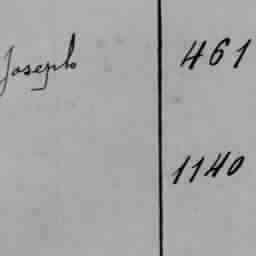 Joseph 461
1140